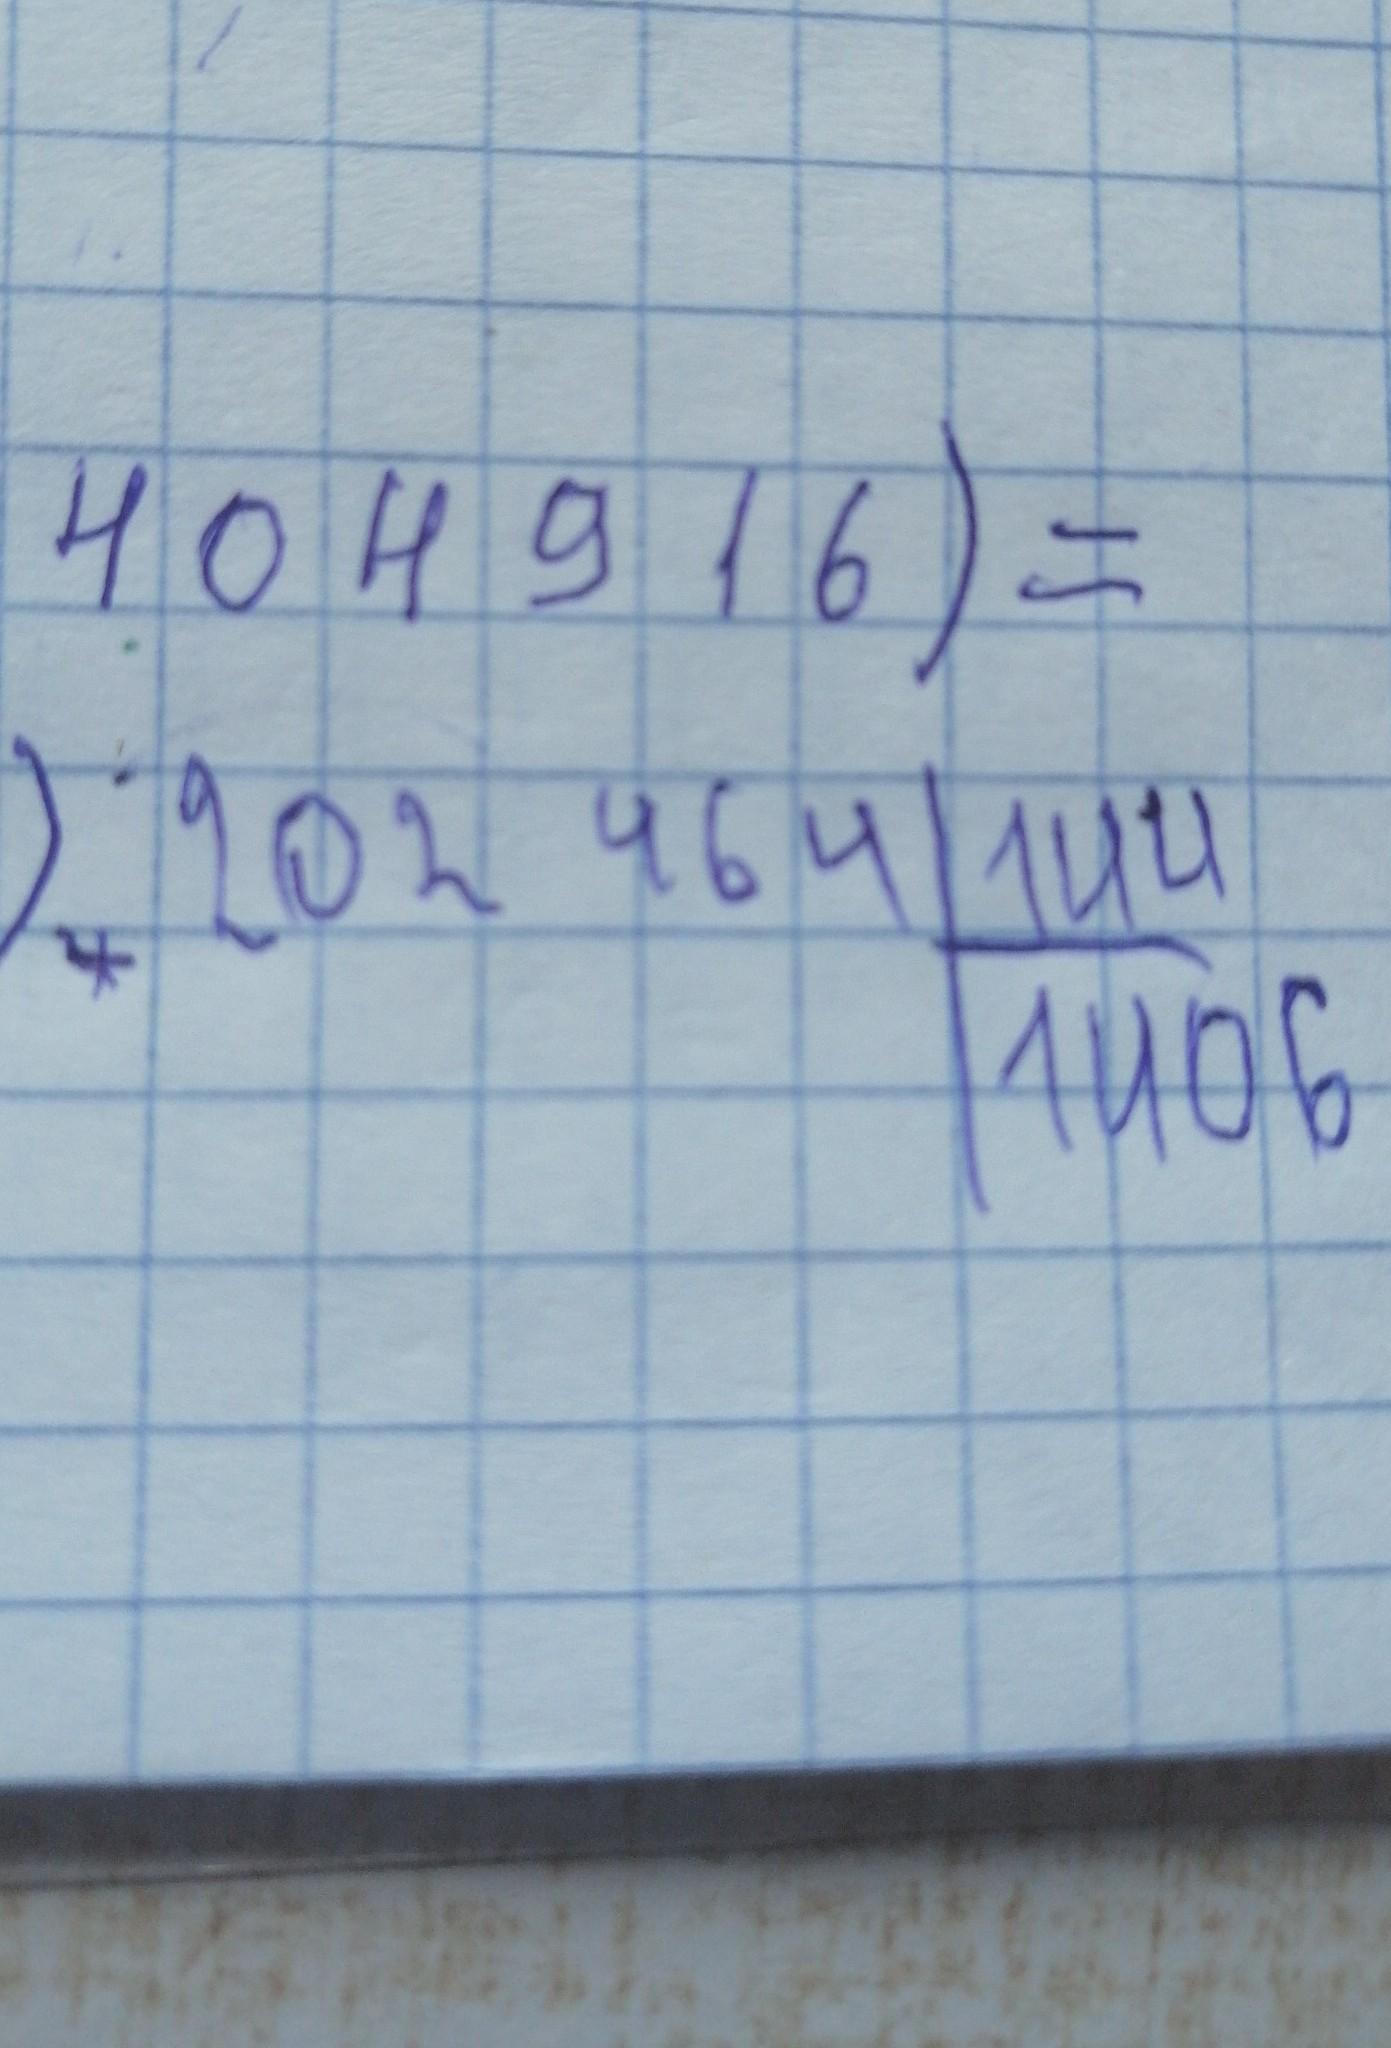 404916)=
) 202 464 144
* 1406